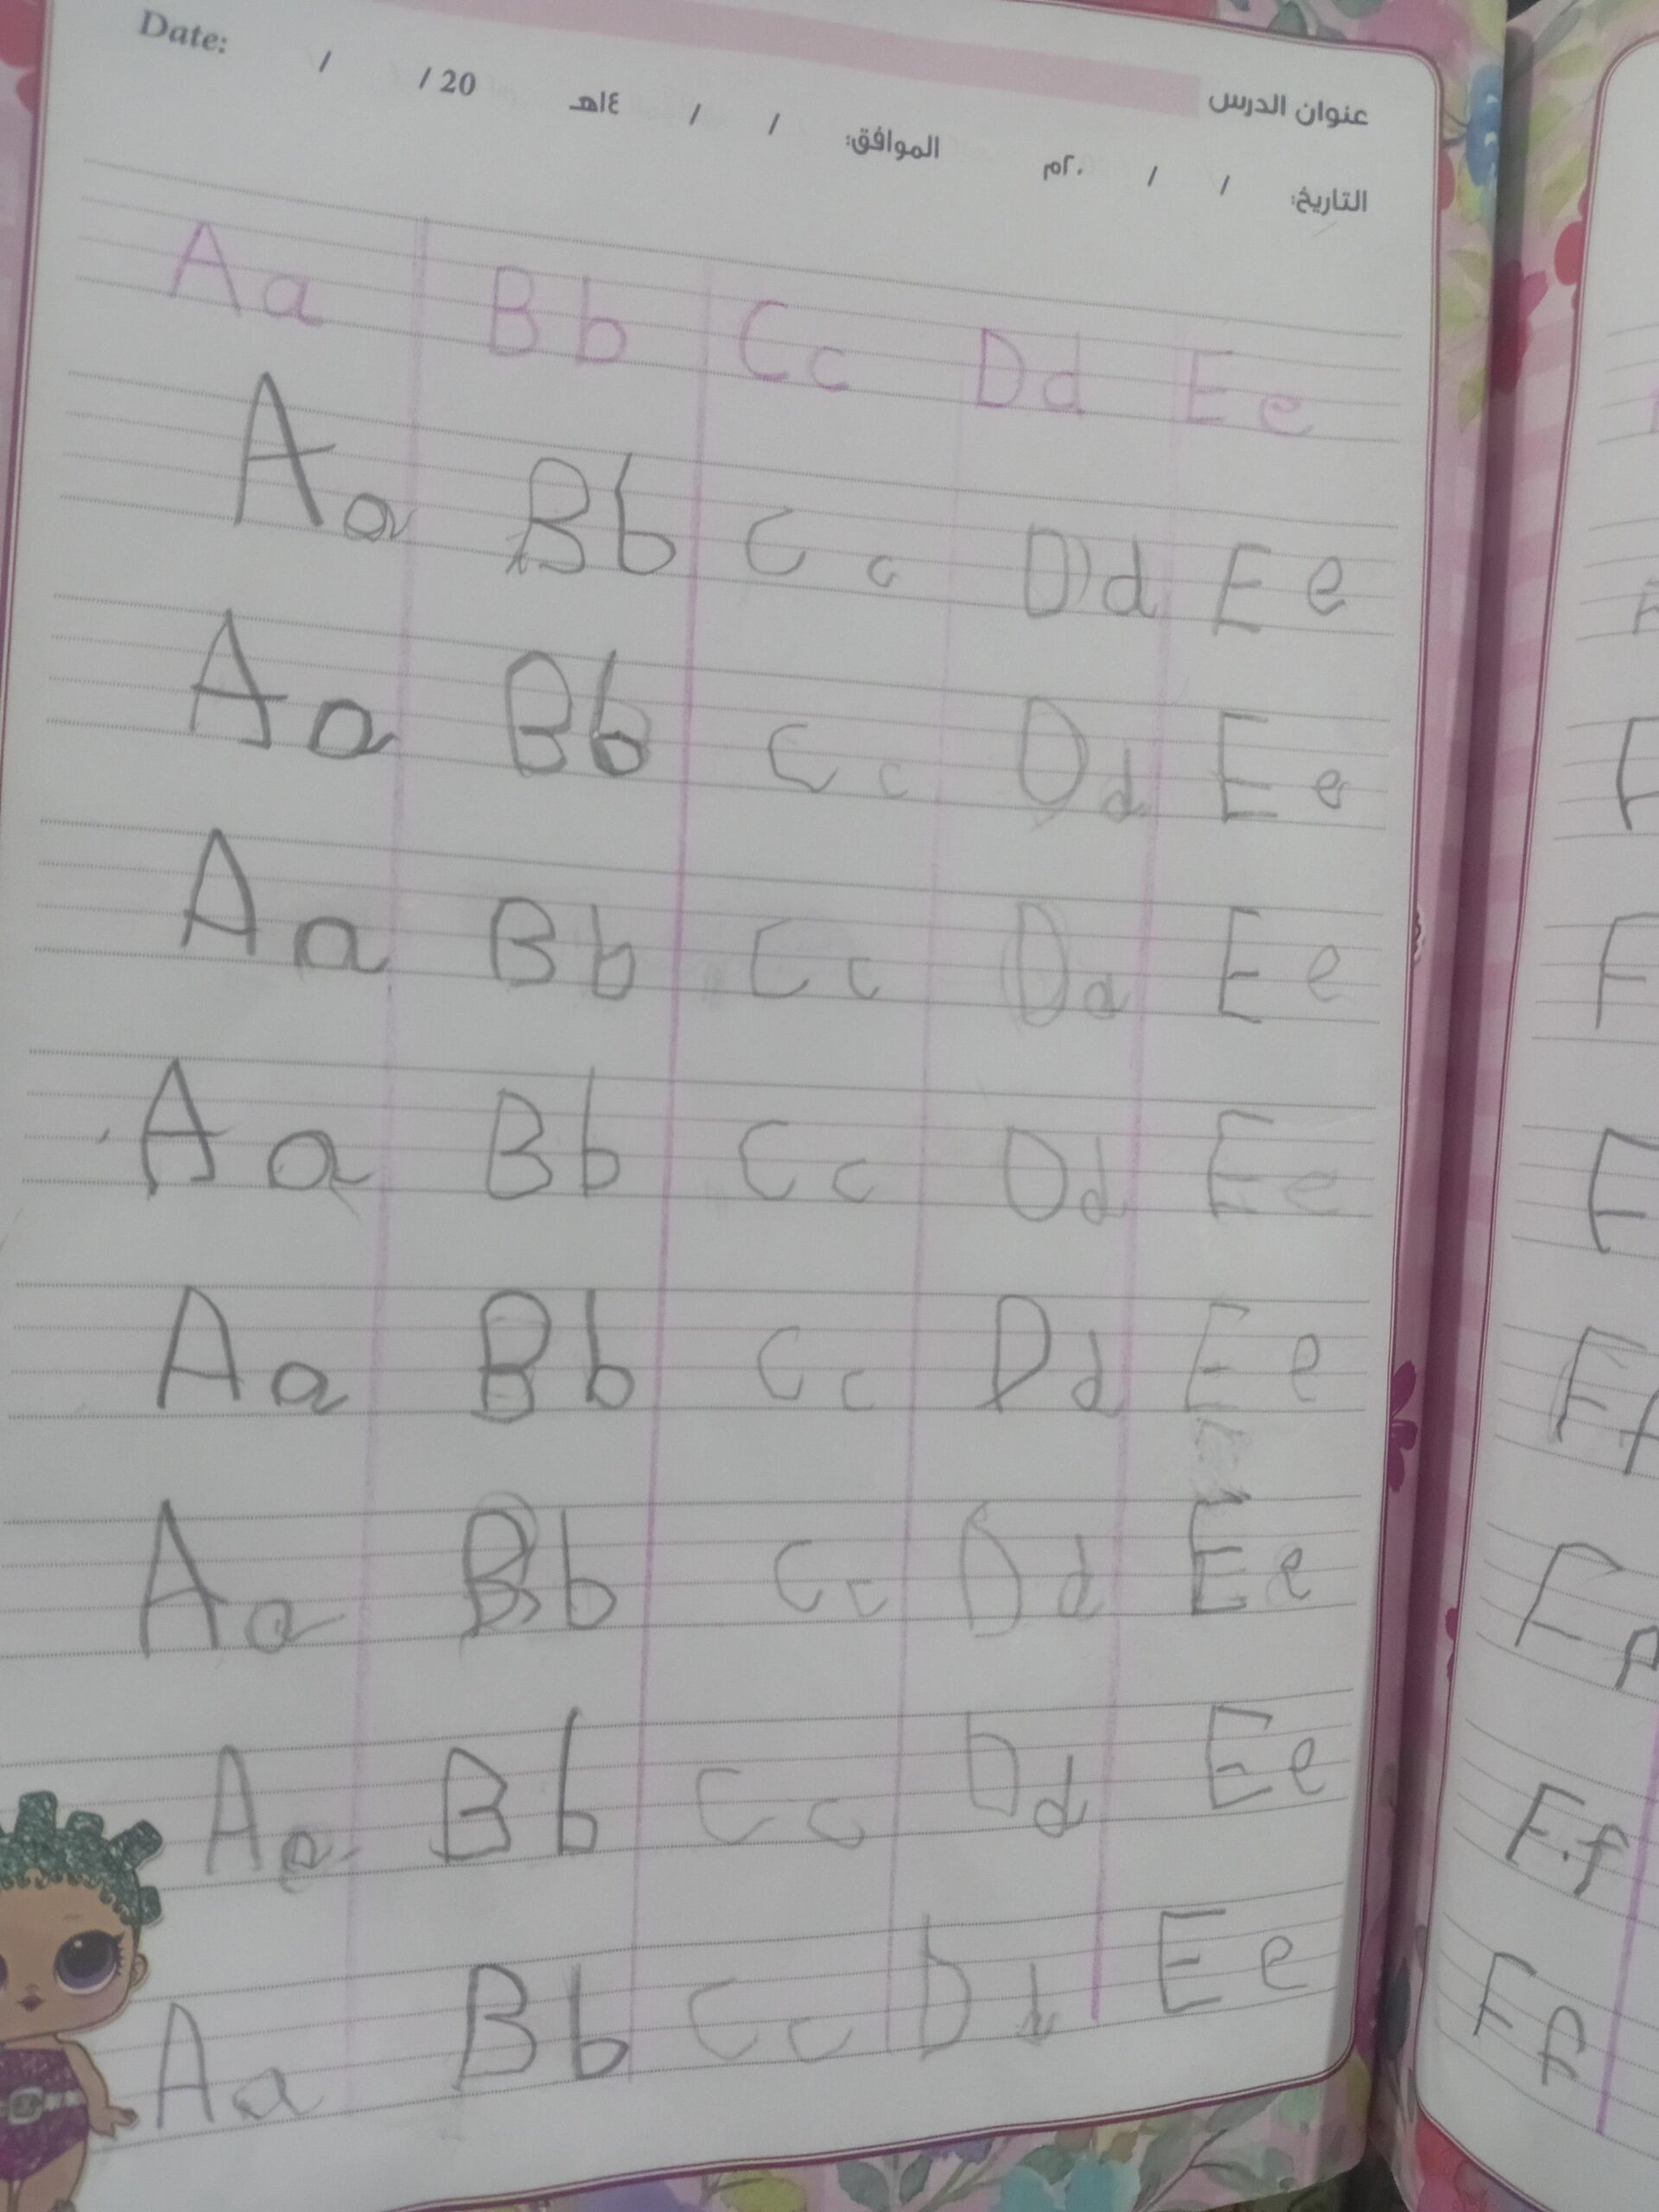 عنوان الدرس
Date: / / 20 ١٤هـ / / الموافق: ٢٠م / / التاريخ:
Aa Bb Cc Dd Ee
Aa Bb Cc Dd Ee
Aa Bb Cc Dd Ee
Aa Bb Cc Dd Ee
Aa Bb Cc Dd Ee
Aa Bb Cc Dd Ee
Aa Bb Cc Dd Ee
Aa Bb Cc Dd Ee
Aa Bb Cc Dd Ee
F
F
F
Ff
F
F.f
Ff